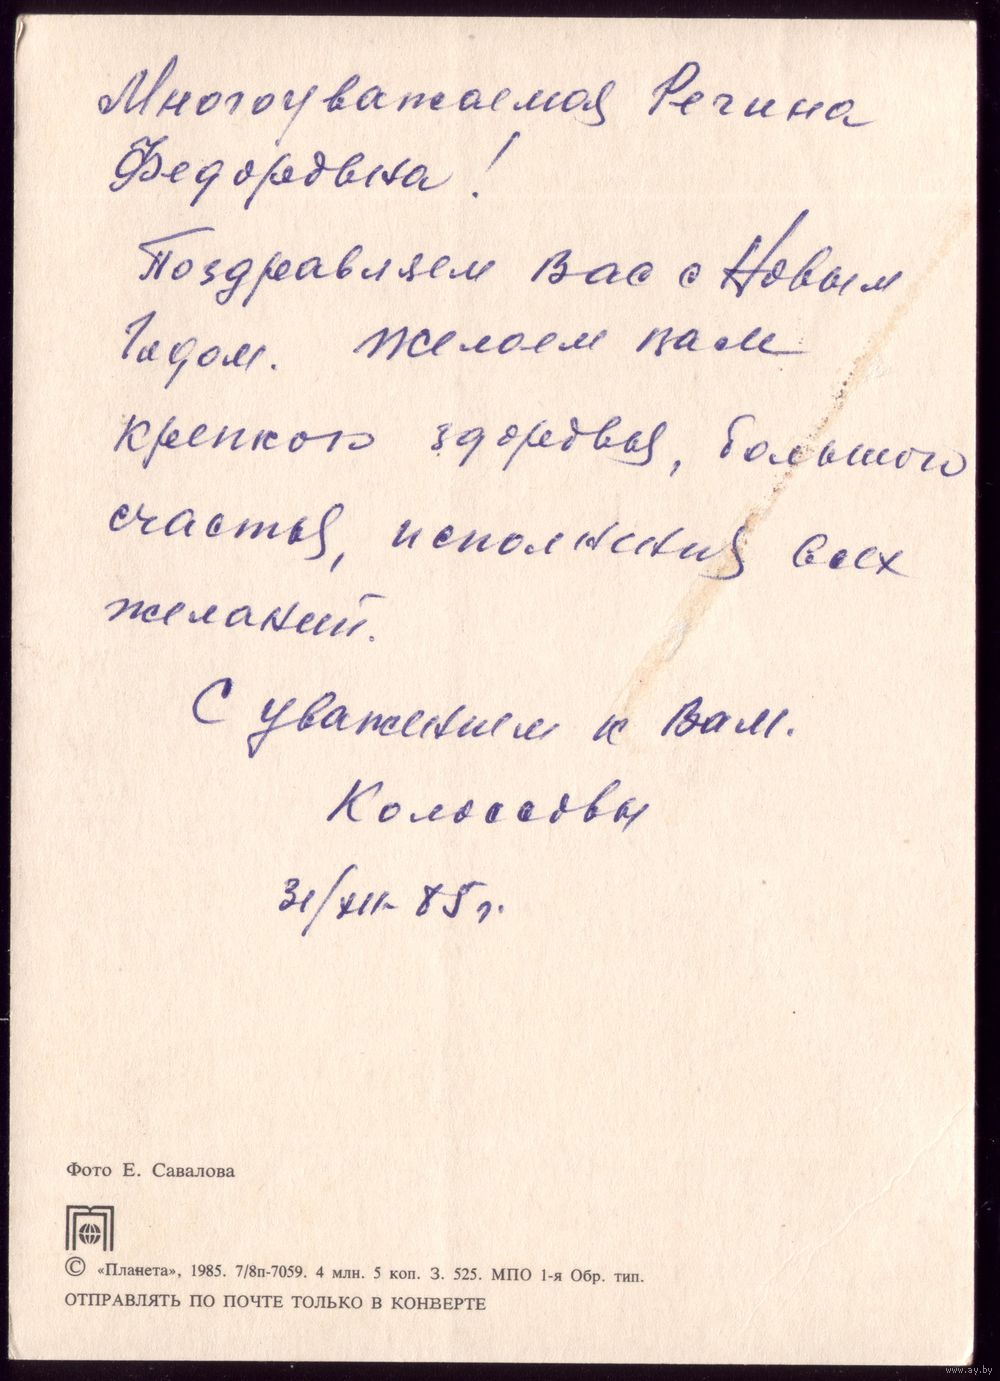 Многоуважаемая Регина
Федоровна!
Поздравляем Вас с Новым
Годом. Желаем вам
крепкого здоровья, большого
счастья, исполнения всех
желаний.
С уважением к Вам.
Колоссовы
31/XII-85 г.
Фото Е. Савалова
© «Планета», 1985. 7/8п-7059. 4 млн. 5 коп. З. 525. МПО 1-я Обр. тип.
ОТПРАВЛЯТЬ ПО ПОЧТЕ ТОЛЬКО В КОНВЕРТЕ
www.ay.by